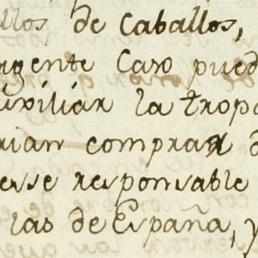 llos de Caballos,
ngente Caso pued
uxiliar la tropa
rian comprar d
esse responsable
las de España, y